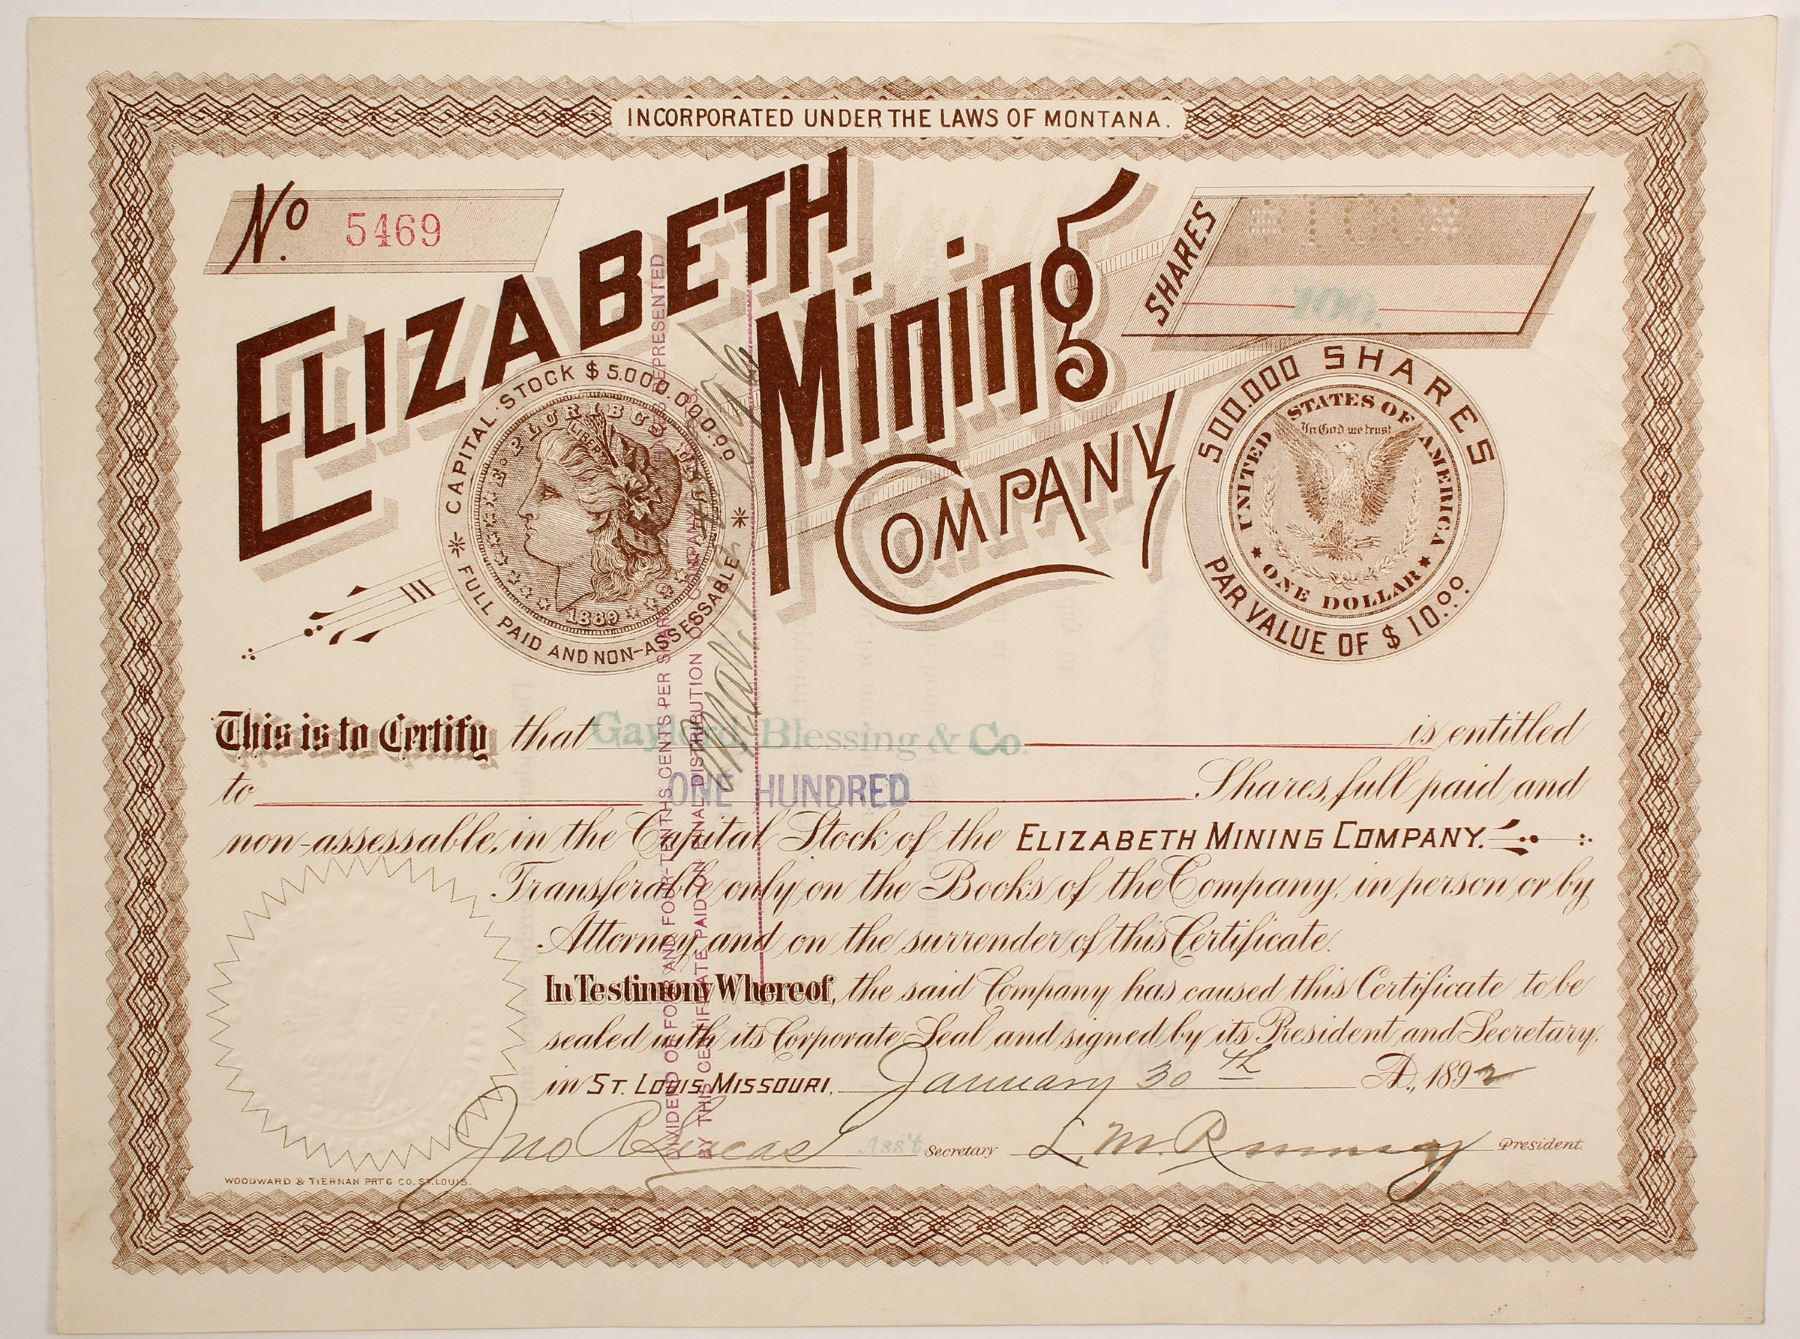 INCORPORATED UNDER THE LAWS OF MONTANA.
No. 5469
ELIZABETH
Mining
COMPANY
SHARES
100.
CAPITAL STOCK $5.000.000.00
FULL PAID AND NON-ASSESSABLE
E·PLURIBUS
LIBERTY
1889
500.000 SHARES
PAR VALUE OF $10.00
UNITED STATES OF AMERICA
In God we trust
ONE DOLLAR
This is to Certify that Gaylord, Blessing & Co. is entitled
to ONE HUNDRED Shares, full paid and
non-assessable, in the Capital Stock of the ELIZABETH MINING COMPANY.
Transferable only on the Books of the Company, in person or by
Attorney, and on the surrender of this Certificate.
In Testimony Whereof, the said Company has caused this Certificate to be
sealed with its Corporate Seal and signed by its President and Secretary,
in ST. LOUIS, MISSOURI, January 30th A.D., 1892
Jno R Lucas Ass't Secretary L. M. Rumsey President.
WOODWARD & TIERNAN PRT'G CO. ST. LOUIS.
DIVIDEND OF FOUR AND FOUR-TENTHS CENTS PER SHARE REPRESENTED
BY THIS CERTIFICATE PAID ON FINAL DISTRIBUTION OF COMPANY'S